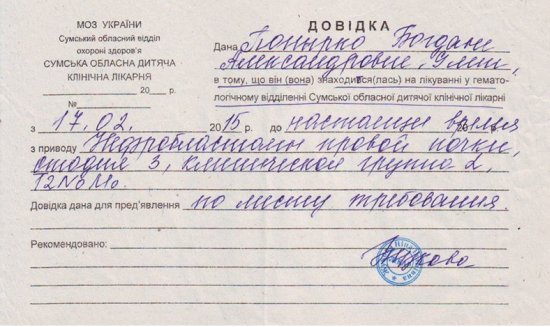 МОЗ УКРАЇНИ
Сумський обласний відділ
охороні здоров'я
СУМСЬКА ОБЛАСНА ДИТЯЧА
КЛІНІЧНА ЛІКАРНЯ
20 р.
№
ДОВІДКА
Дана Понырко Богдане
Александровне,
в тому, що він (вона) знаходится(лась) на лікуванні у гемато-
логічному відділенні Сумської обласної дитячої клінічної лікарні
з 17.02. 2015 р. до настоящее время
з приводу Нефробластомы правой почки,
стадия 3, клиническая группа 2,
T2N0M0.
Довідка дана для пред'явлення по месту требования.
Рекомендовано: